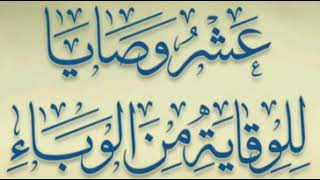 عَشْرُ وَصَايَا
لِلْوِقَايَةِ مِنَ الْوَبَاءِ